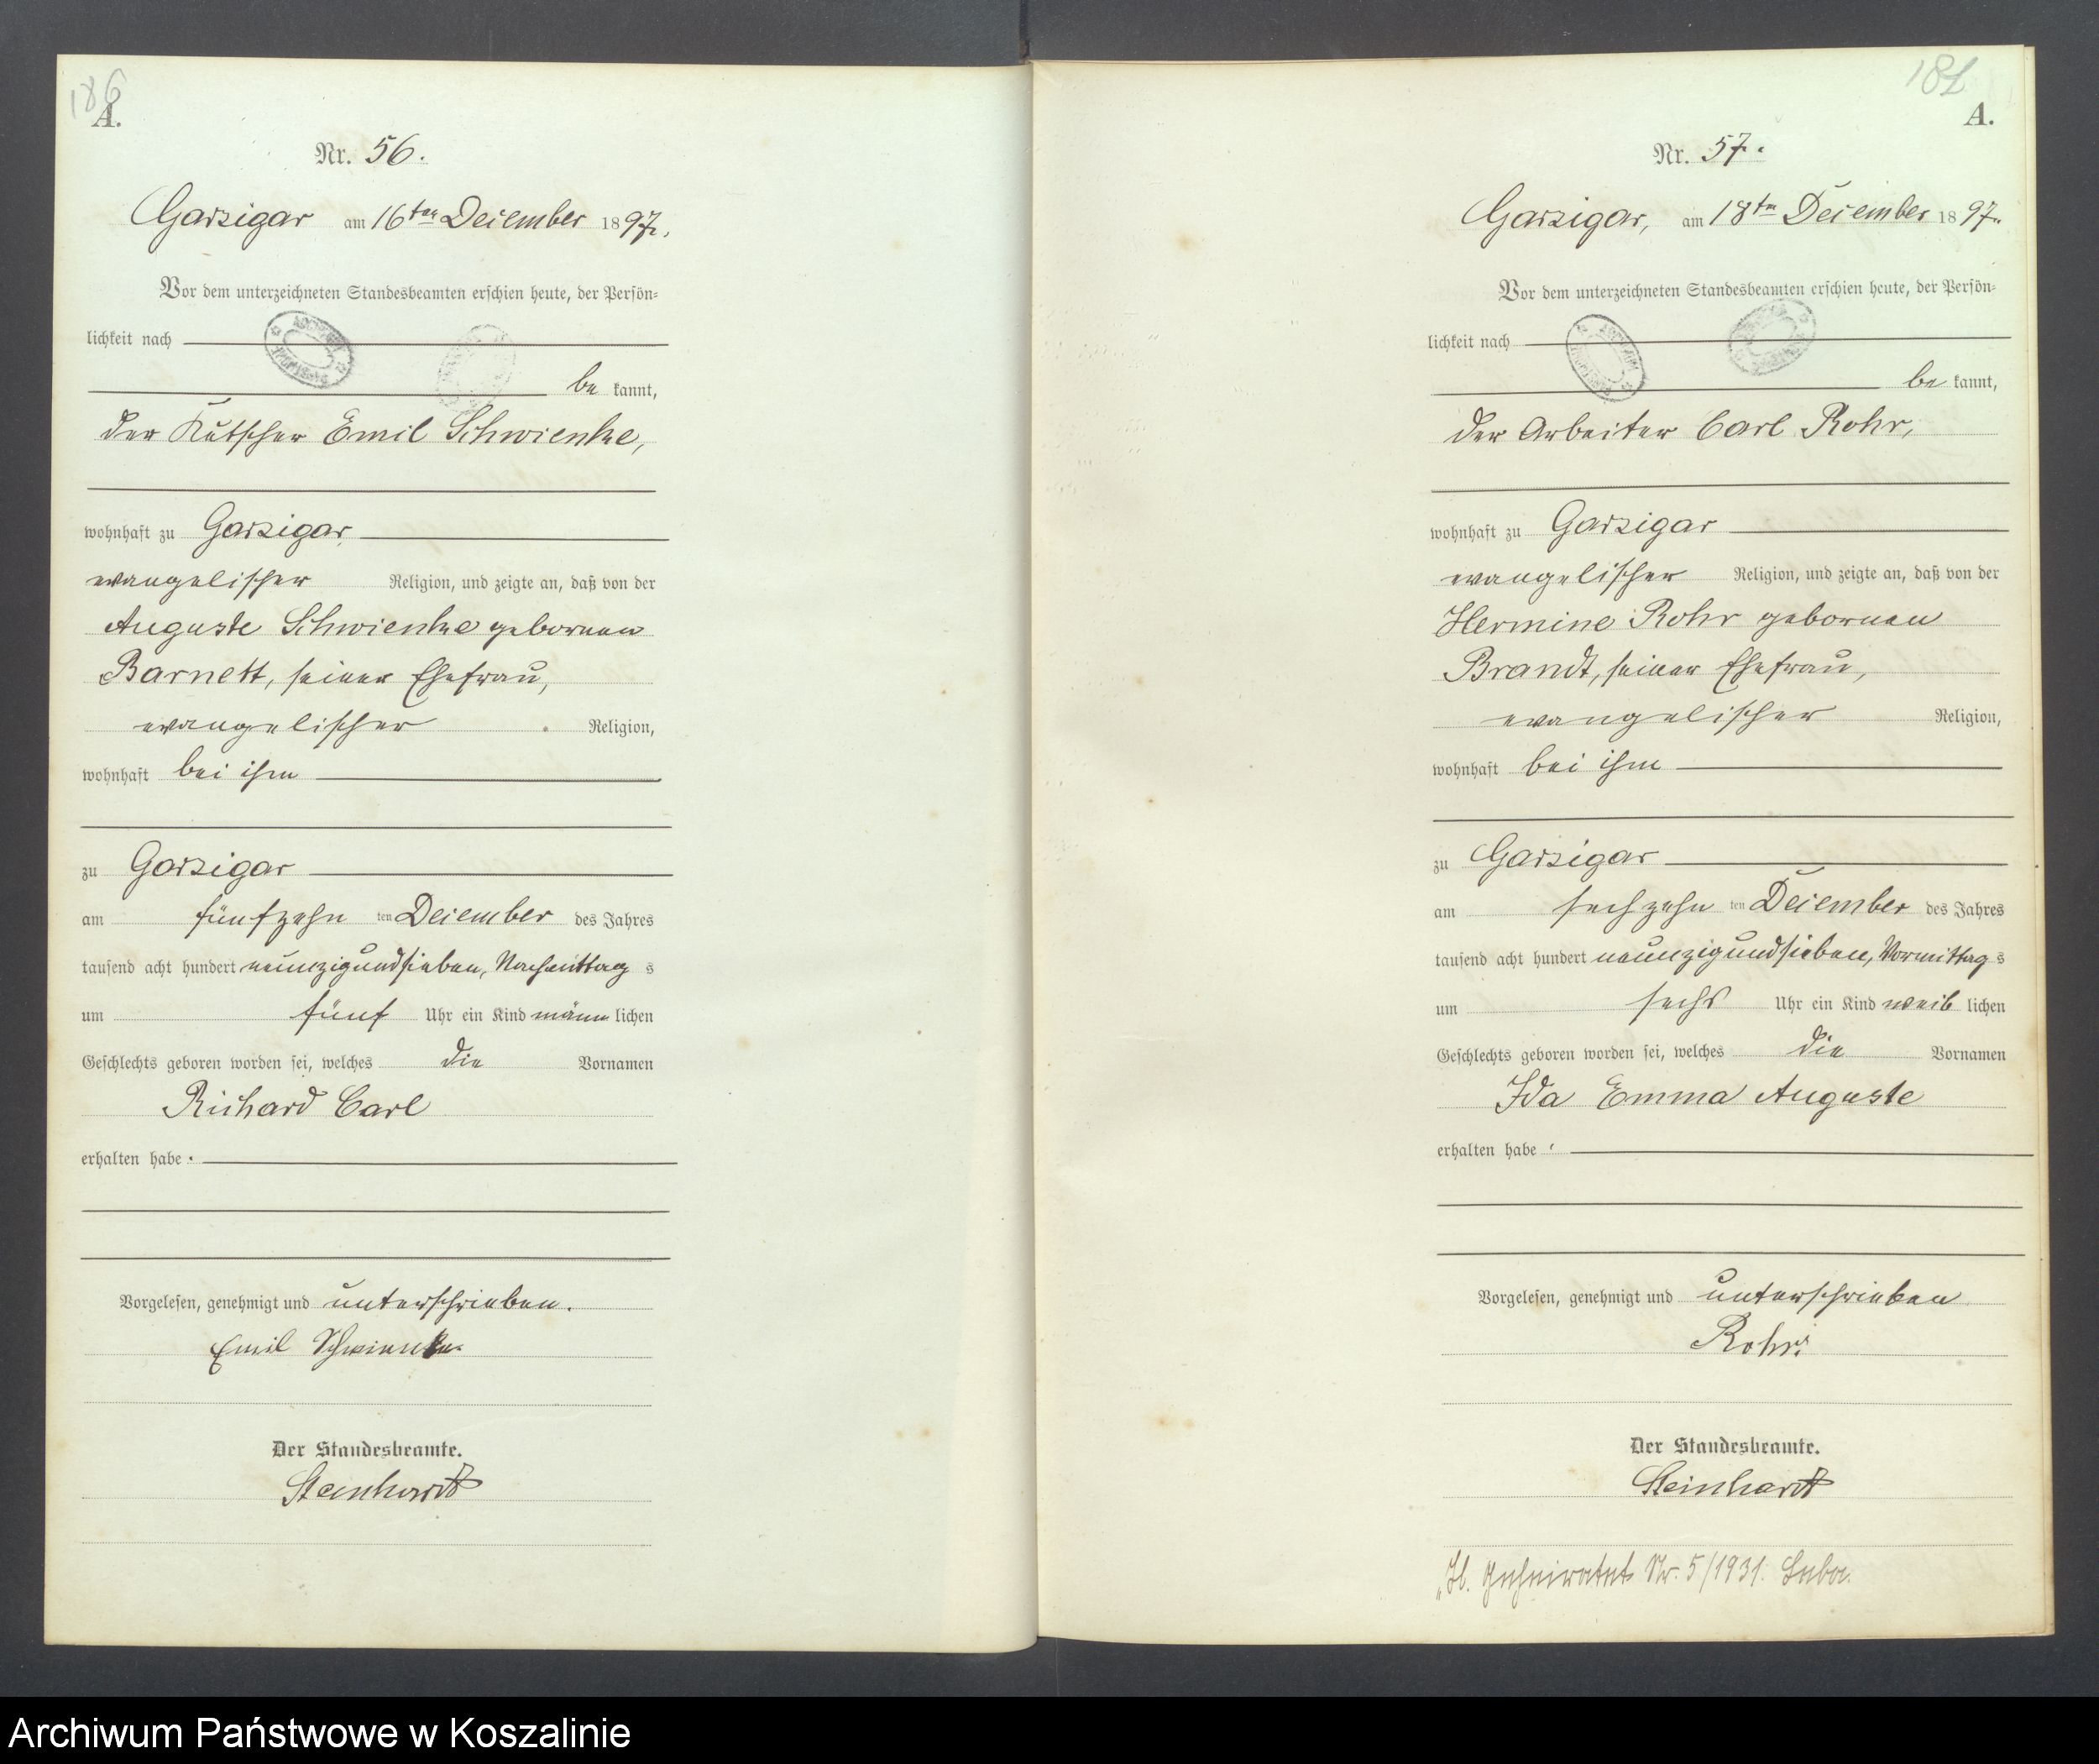 186
A.
Nr. 56.
Garzigar am 16ten December 1897.
Vor dem unterzeichneten Standesbeamten erschien heute, der Persön-
lichkeit nach
be kannt,
der Kutscher Emil Schwienke,
wohnhaft zu Garzigar
evangelischer Religion, und zeigte an, daß von der
Auguste Schwienke gebornen
Barnett, seiner Ehefrau,
evangelischer Religion,
wohnhaft bei ihm
zu Garzigar
am fünfzehn ten December des Jahres
tausend acht hundert neunzigundsieben, Nachmittag s
um fünf Uhr ein Kind männ lichen
Geschlechts geboren worden sei, welches die Vornamen
Richard Carl
erhalten habe.
Vorgelesen, genehmigt und unterschrieben.
Emil Schwienke
Der Standesbeamte.
Steinhardt
A.
Nr. 57.
Garzigar, am 18ten December 1897.
Vor dem unterzeichneten Standesbeamten erschien heute, der Persön-
lichkeit nach
be kannt,
der Arbeiter Carl Rohr,
wohnhaft zu Garzigar
evangelischer Religion, und zeigte an, daß von der
Hermine Rohr gebornen
Brandt, seiner Ehefrau,
evangelischer Religion,
wohnhaft bei ihm
zu Garzigar
am sechzehn ten December des Jahres
tausend acht hundert neunzigundsieben, Vormittag s
um sechs Uhr ein Kind weib lichen
Geschlechts geboren worden sei, welches die Vornamen
Ida Emma Auguste
erhalten habe.
Vorgelesen, genehmigt und unterschrieben
Rohr.
Der Standesbeamte.
Steinhardt
Nr. 5/1931.
Archiwum Państwowe w Koszalinie